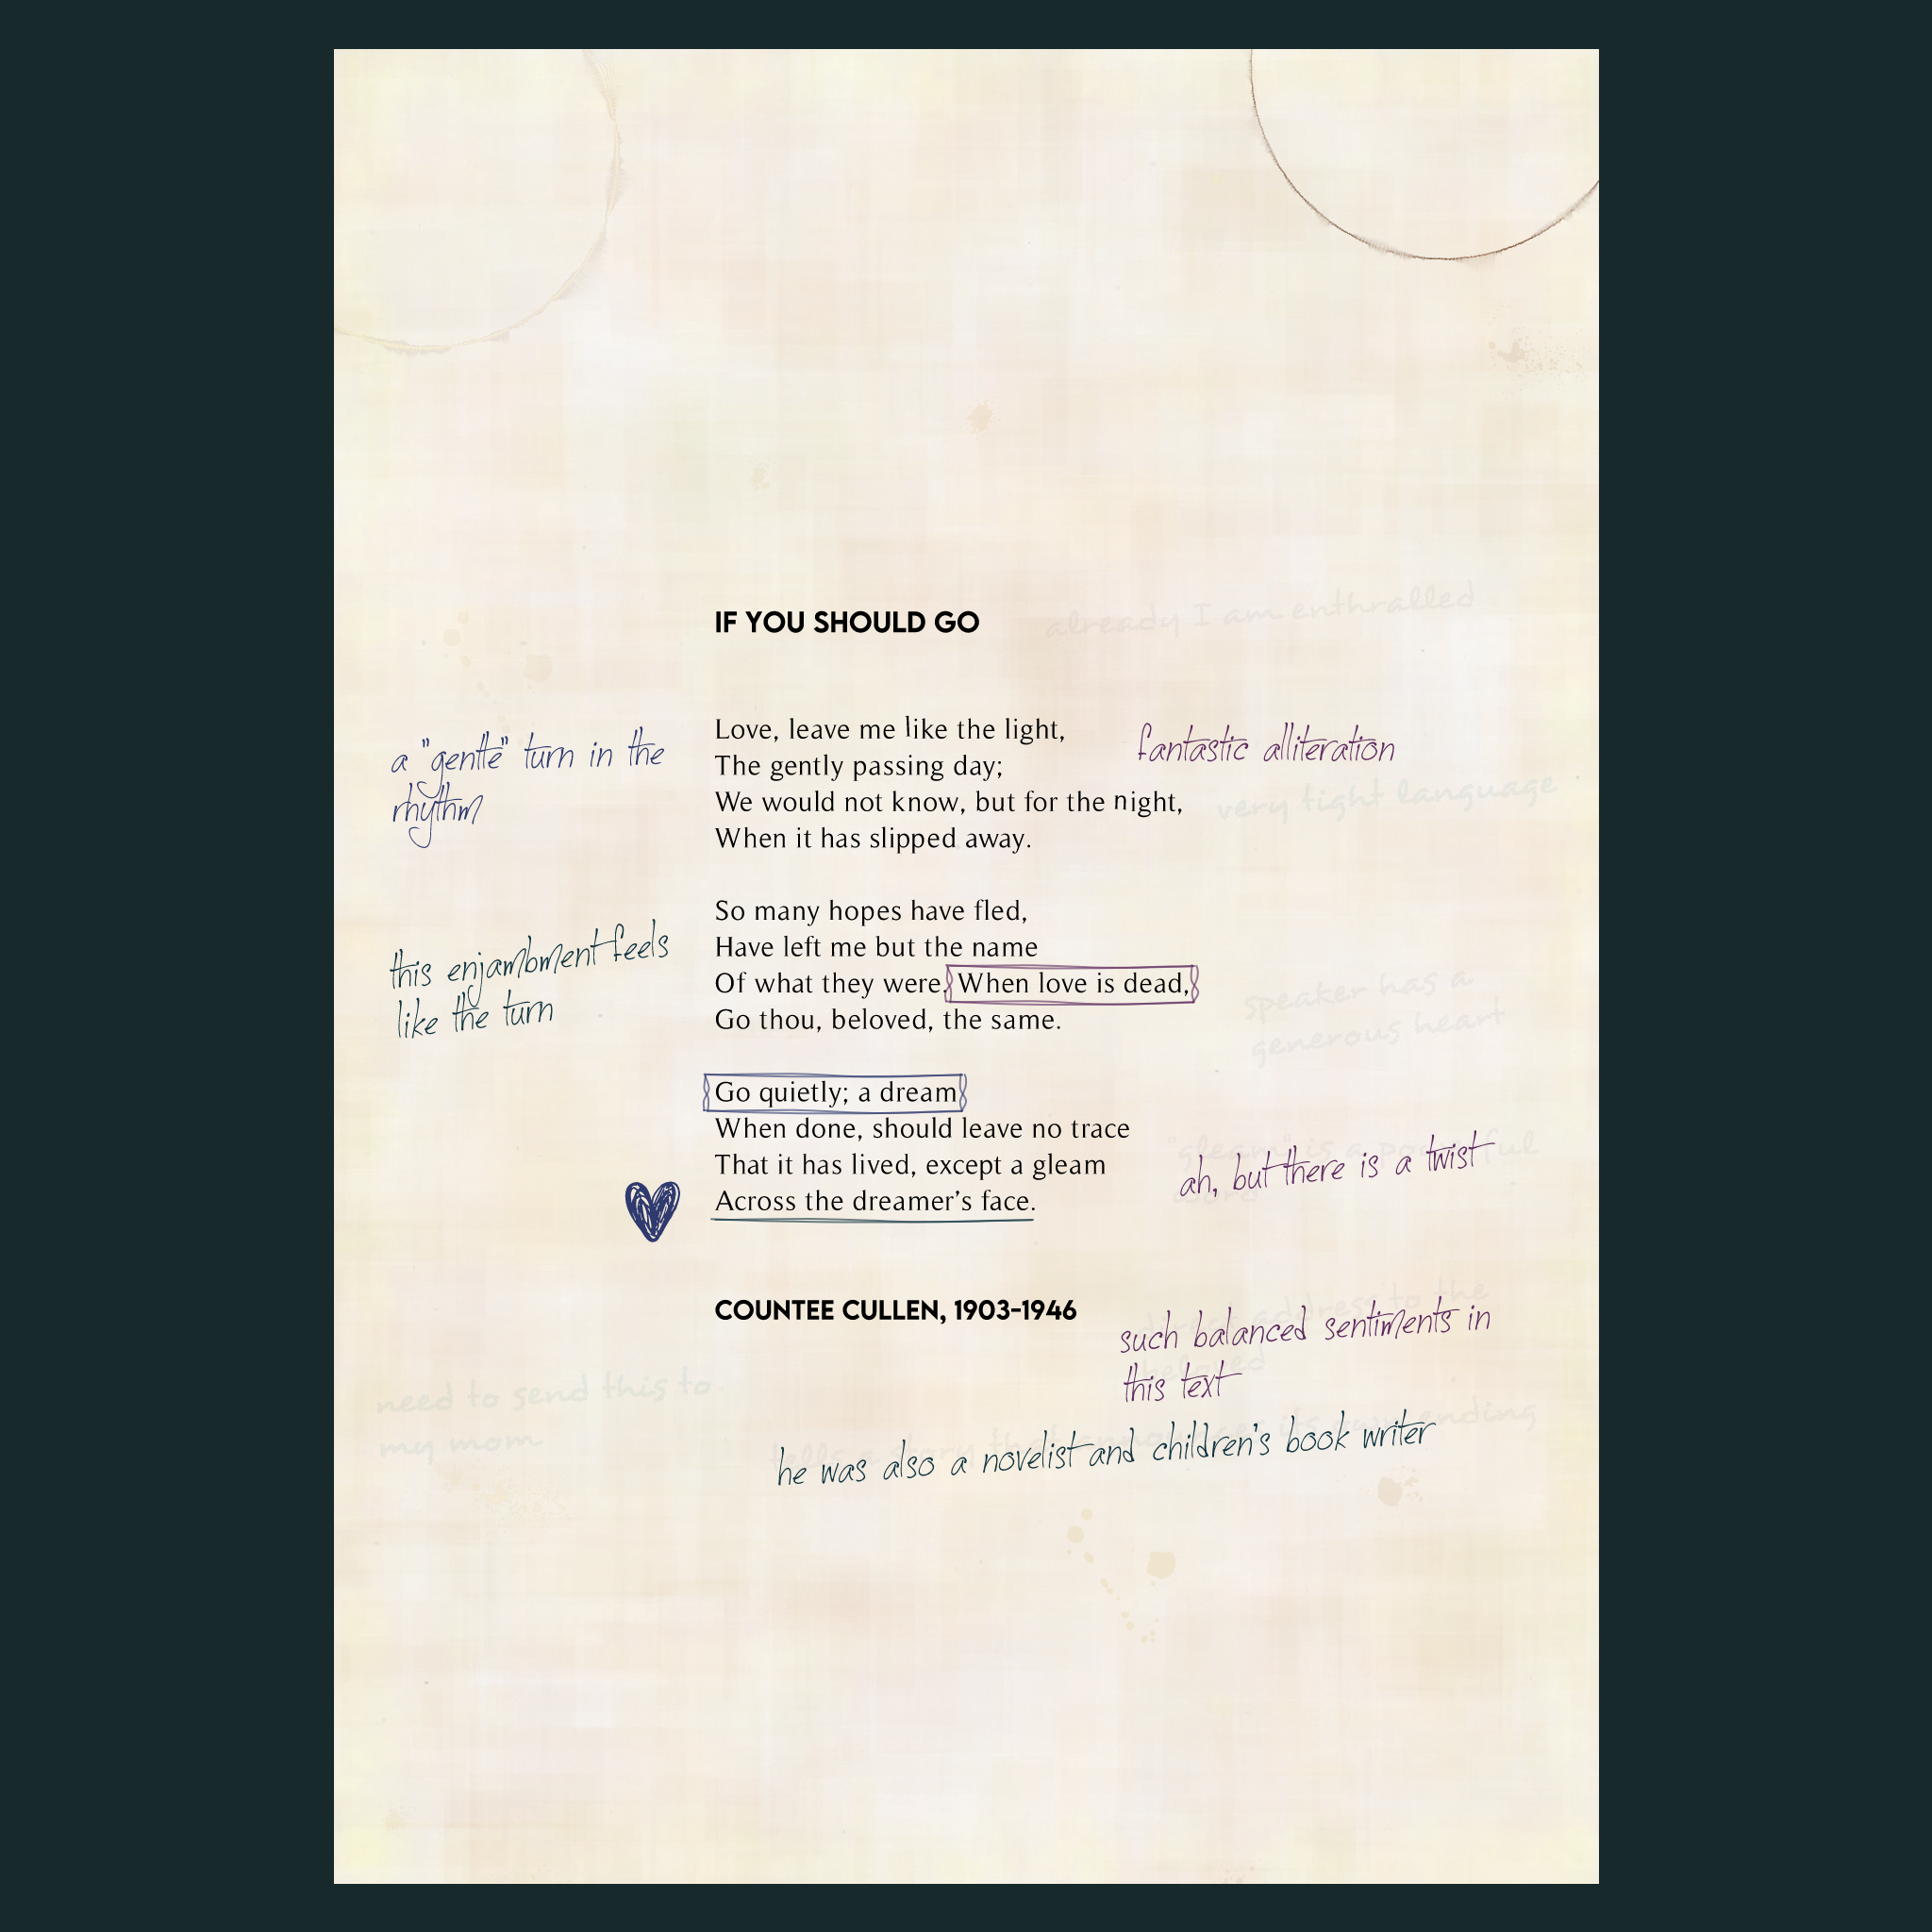 IF YOU SHOULD GO
already I am enthralled
Love, leave me like the light,
The gently passing day;
We would not know, but for the night,
When it has slipped away.
a "gentle" turn in the
rhythm
fantastic alliteration
very tight language
So many hopes have fled,
Have left me but the name
Of what they were. When love is dead,
Go thou, beloved, the same.
this enjambment feels
like the turn
speaker has a
generous heart
Go quietly; a dream
When done, should leave no trace
That it has lived, except a gleam
Across the dreamer's face.
"gleam" is a powerful
word
ah, but there is a twist
COUNTEE CULLEN, 1903-1946
address to the
beloved
such balanced sentiments in
this text
need to send this to
my mom
tells a story that announces its own ending
he was also a novelist and children's book writer